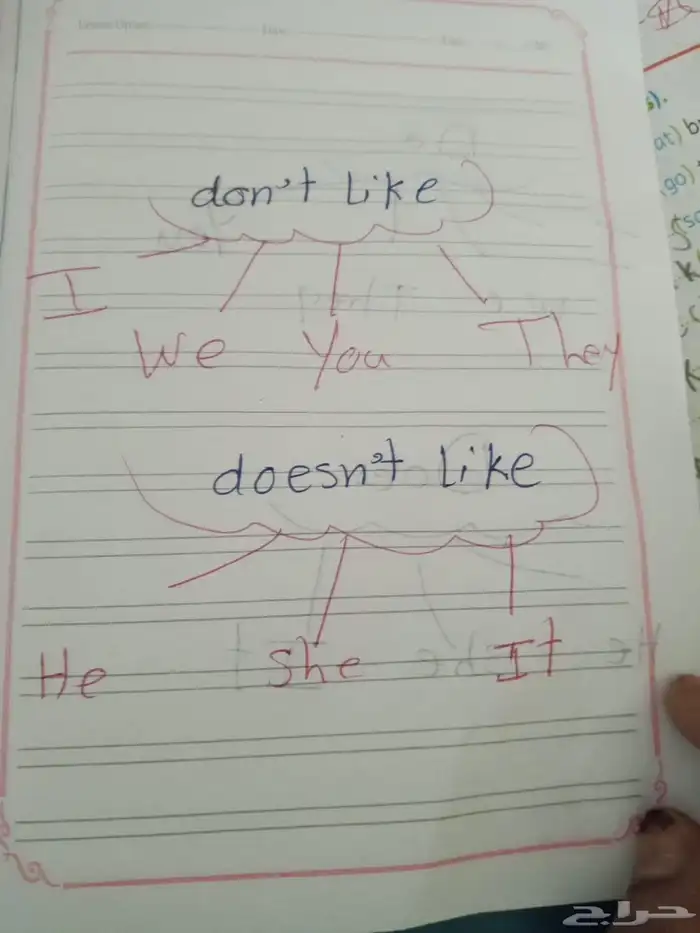 don't like
I
We You They
doesn't like
He She It
s).
at) b
go)
حراج